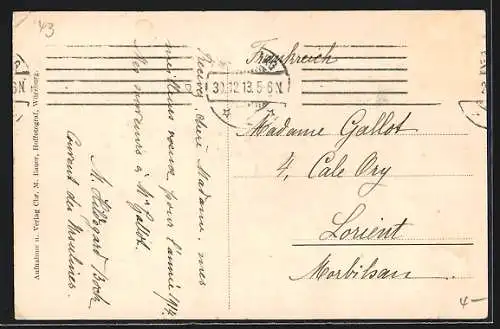 43
Recevez chère Madame, mes
meilleurs voeux pour l'année 1914.
Mes amours à Mr Gallot.
M. Hildegard Koch
Couvent des Ursulines.
Aufnahme u. Verlag v. M. Bauer, Hofphotograf, Würzburg.
Frankreich
30.12.13.5-6N.
6N.
Madame Gallot
4, Cale Ory
Lorient
Morbihan
4-